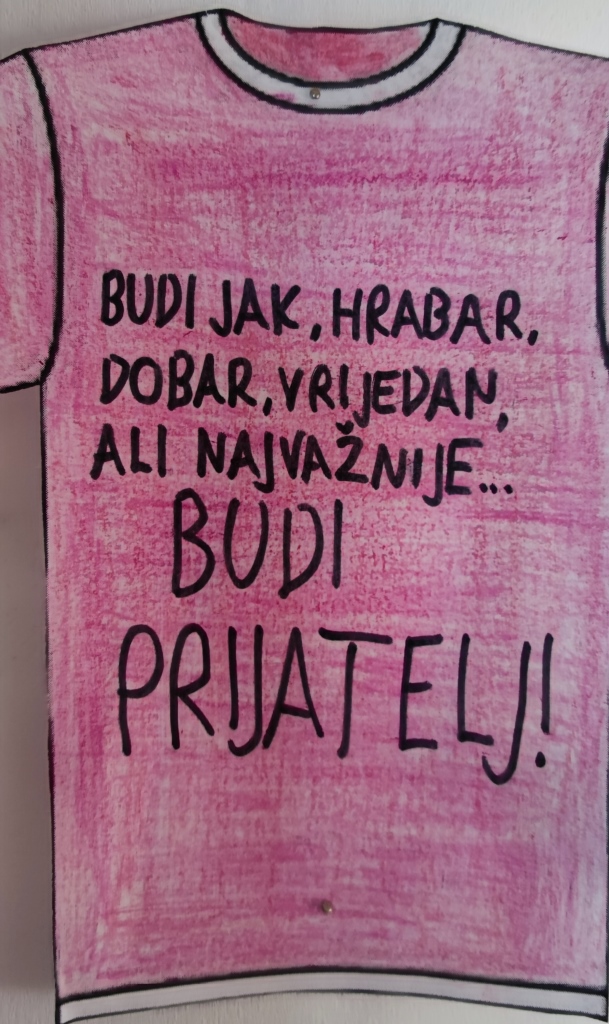 BUDI JAK, HRABAR,
DOBAR, VRIJEDAN,
ALI NAJVAŽNIJE...
BUDI
PRIJATELJ!